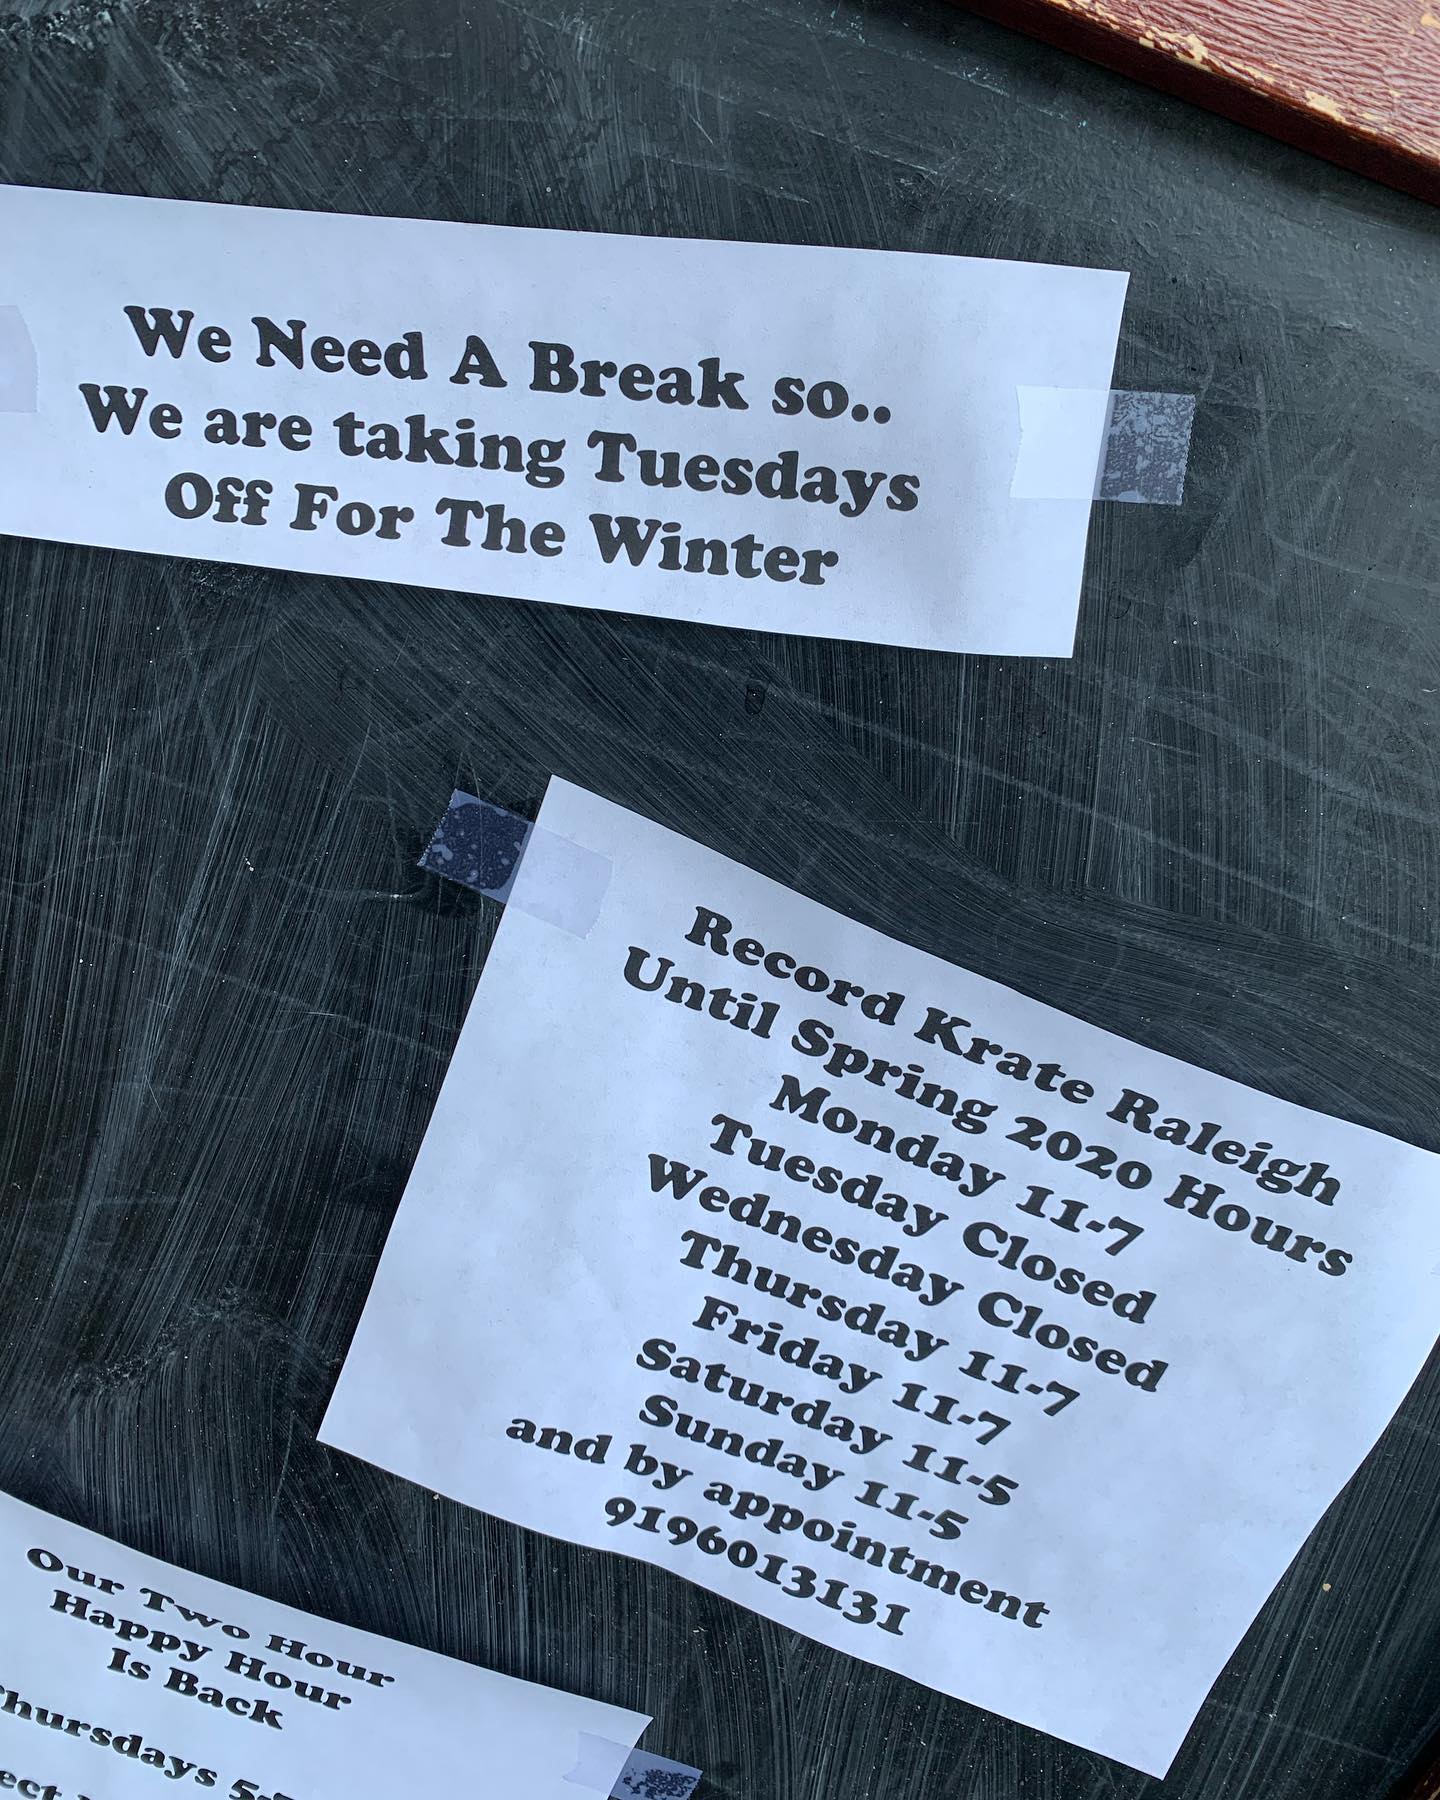 We Need A Break so..
We are taking Tuesdays
Off For The Winter
Record Krate Raleigh
Until Spring 2020 Hours
Monday 11-7
Tuesday Closed
Wednesday Closed
Thursday 11-7
Friday 11-7
Saturday 11-5
Sunday 11-5
and by appointment
9196013131
Our Two Hour
Happy Hour
Is Back
Thursdays 5-7